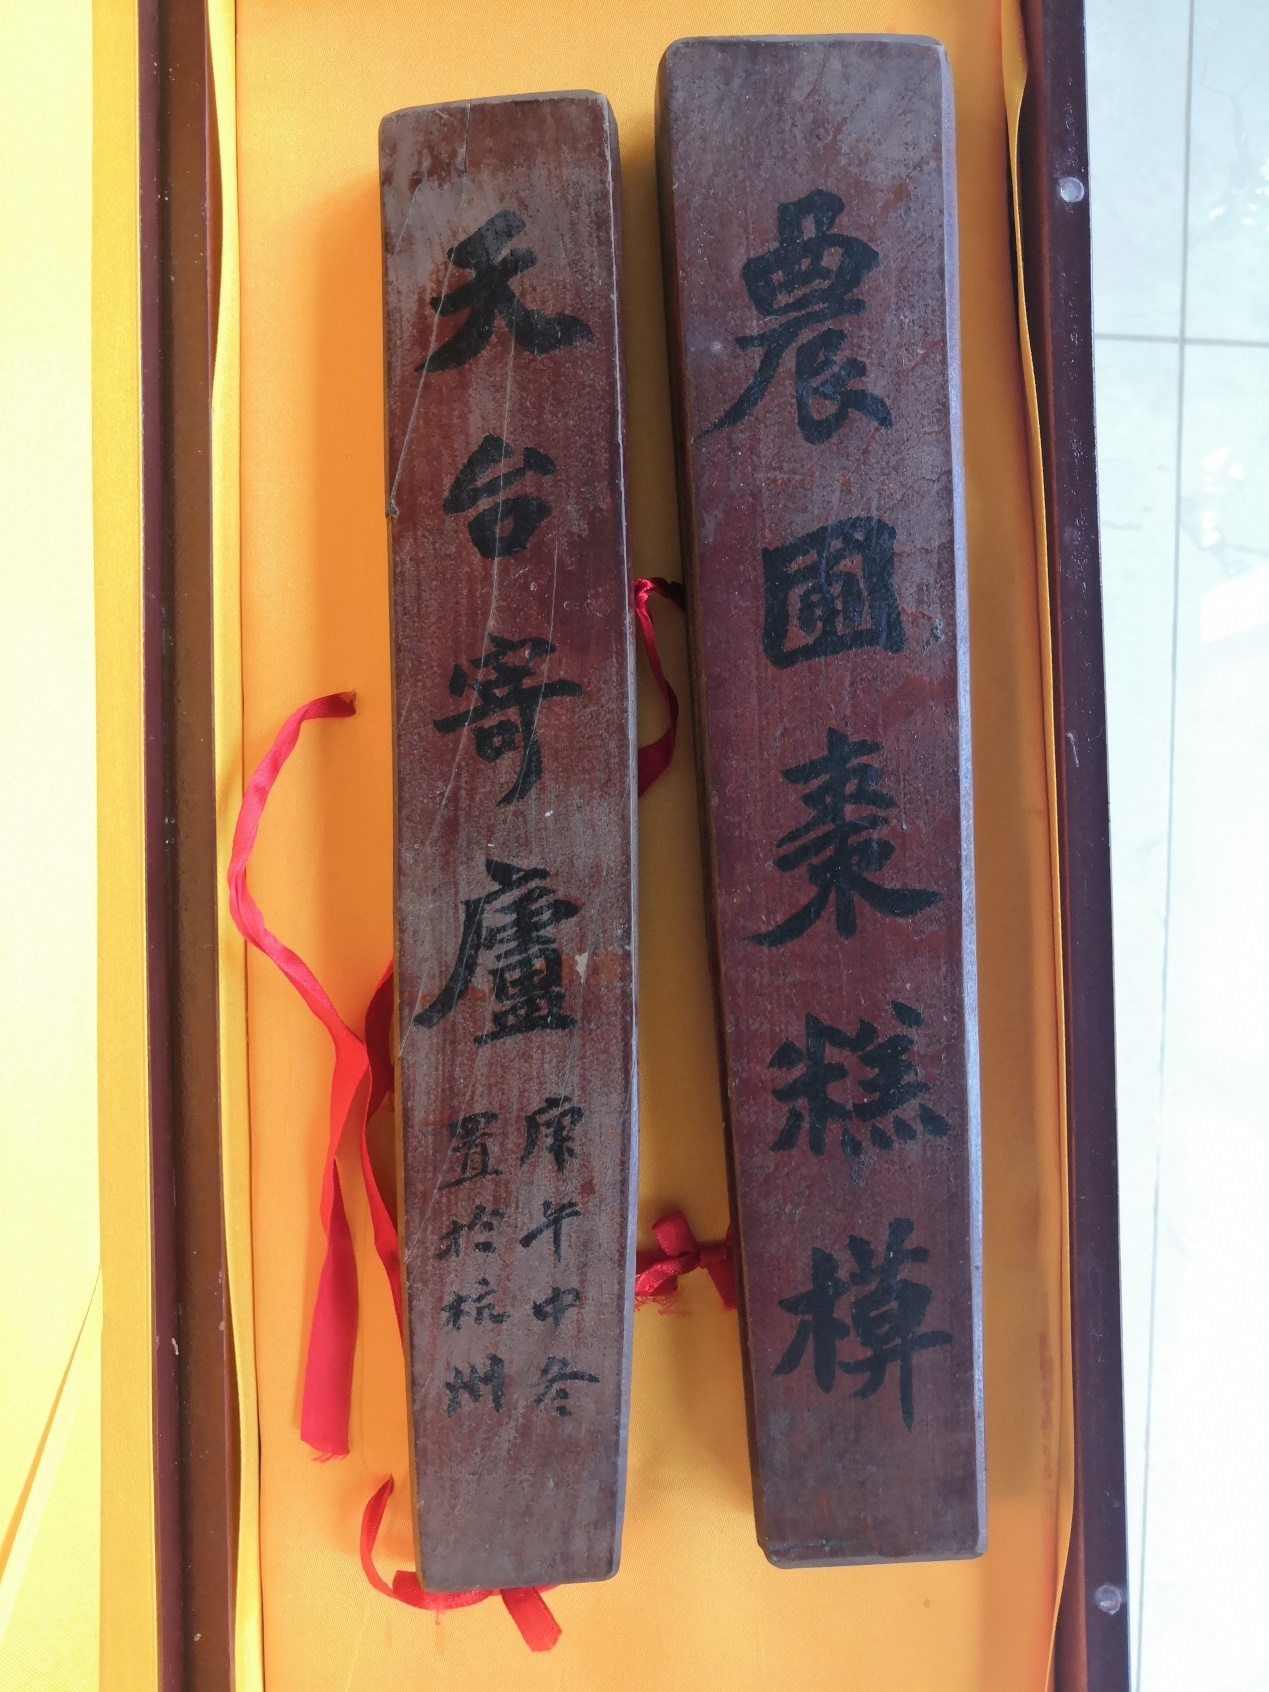 農圃棗糕模
天台寄廬
庚午中冬
置於杭州